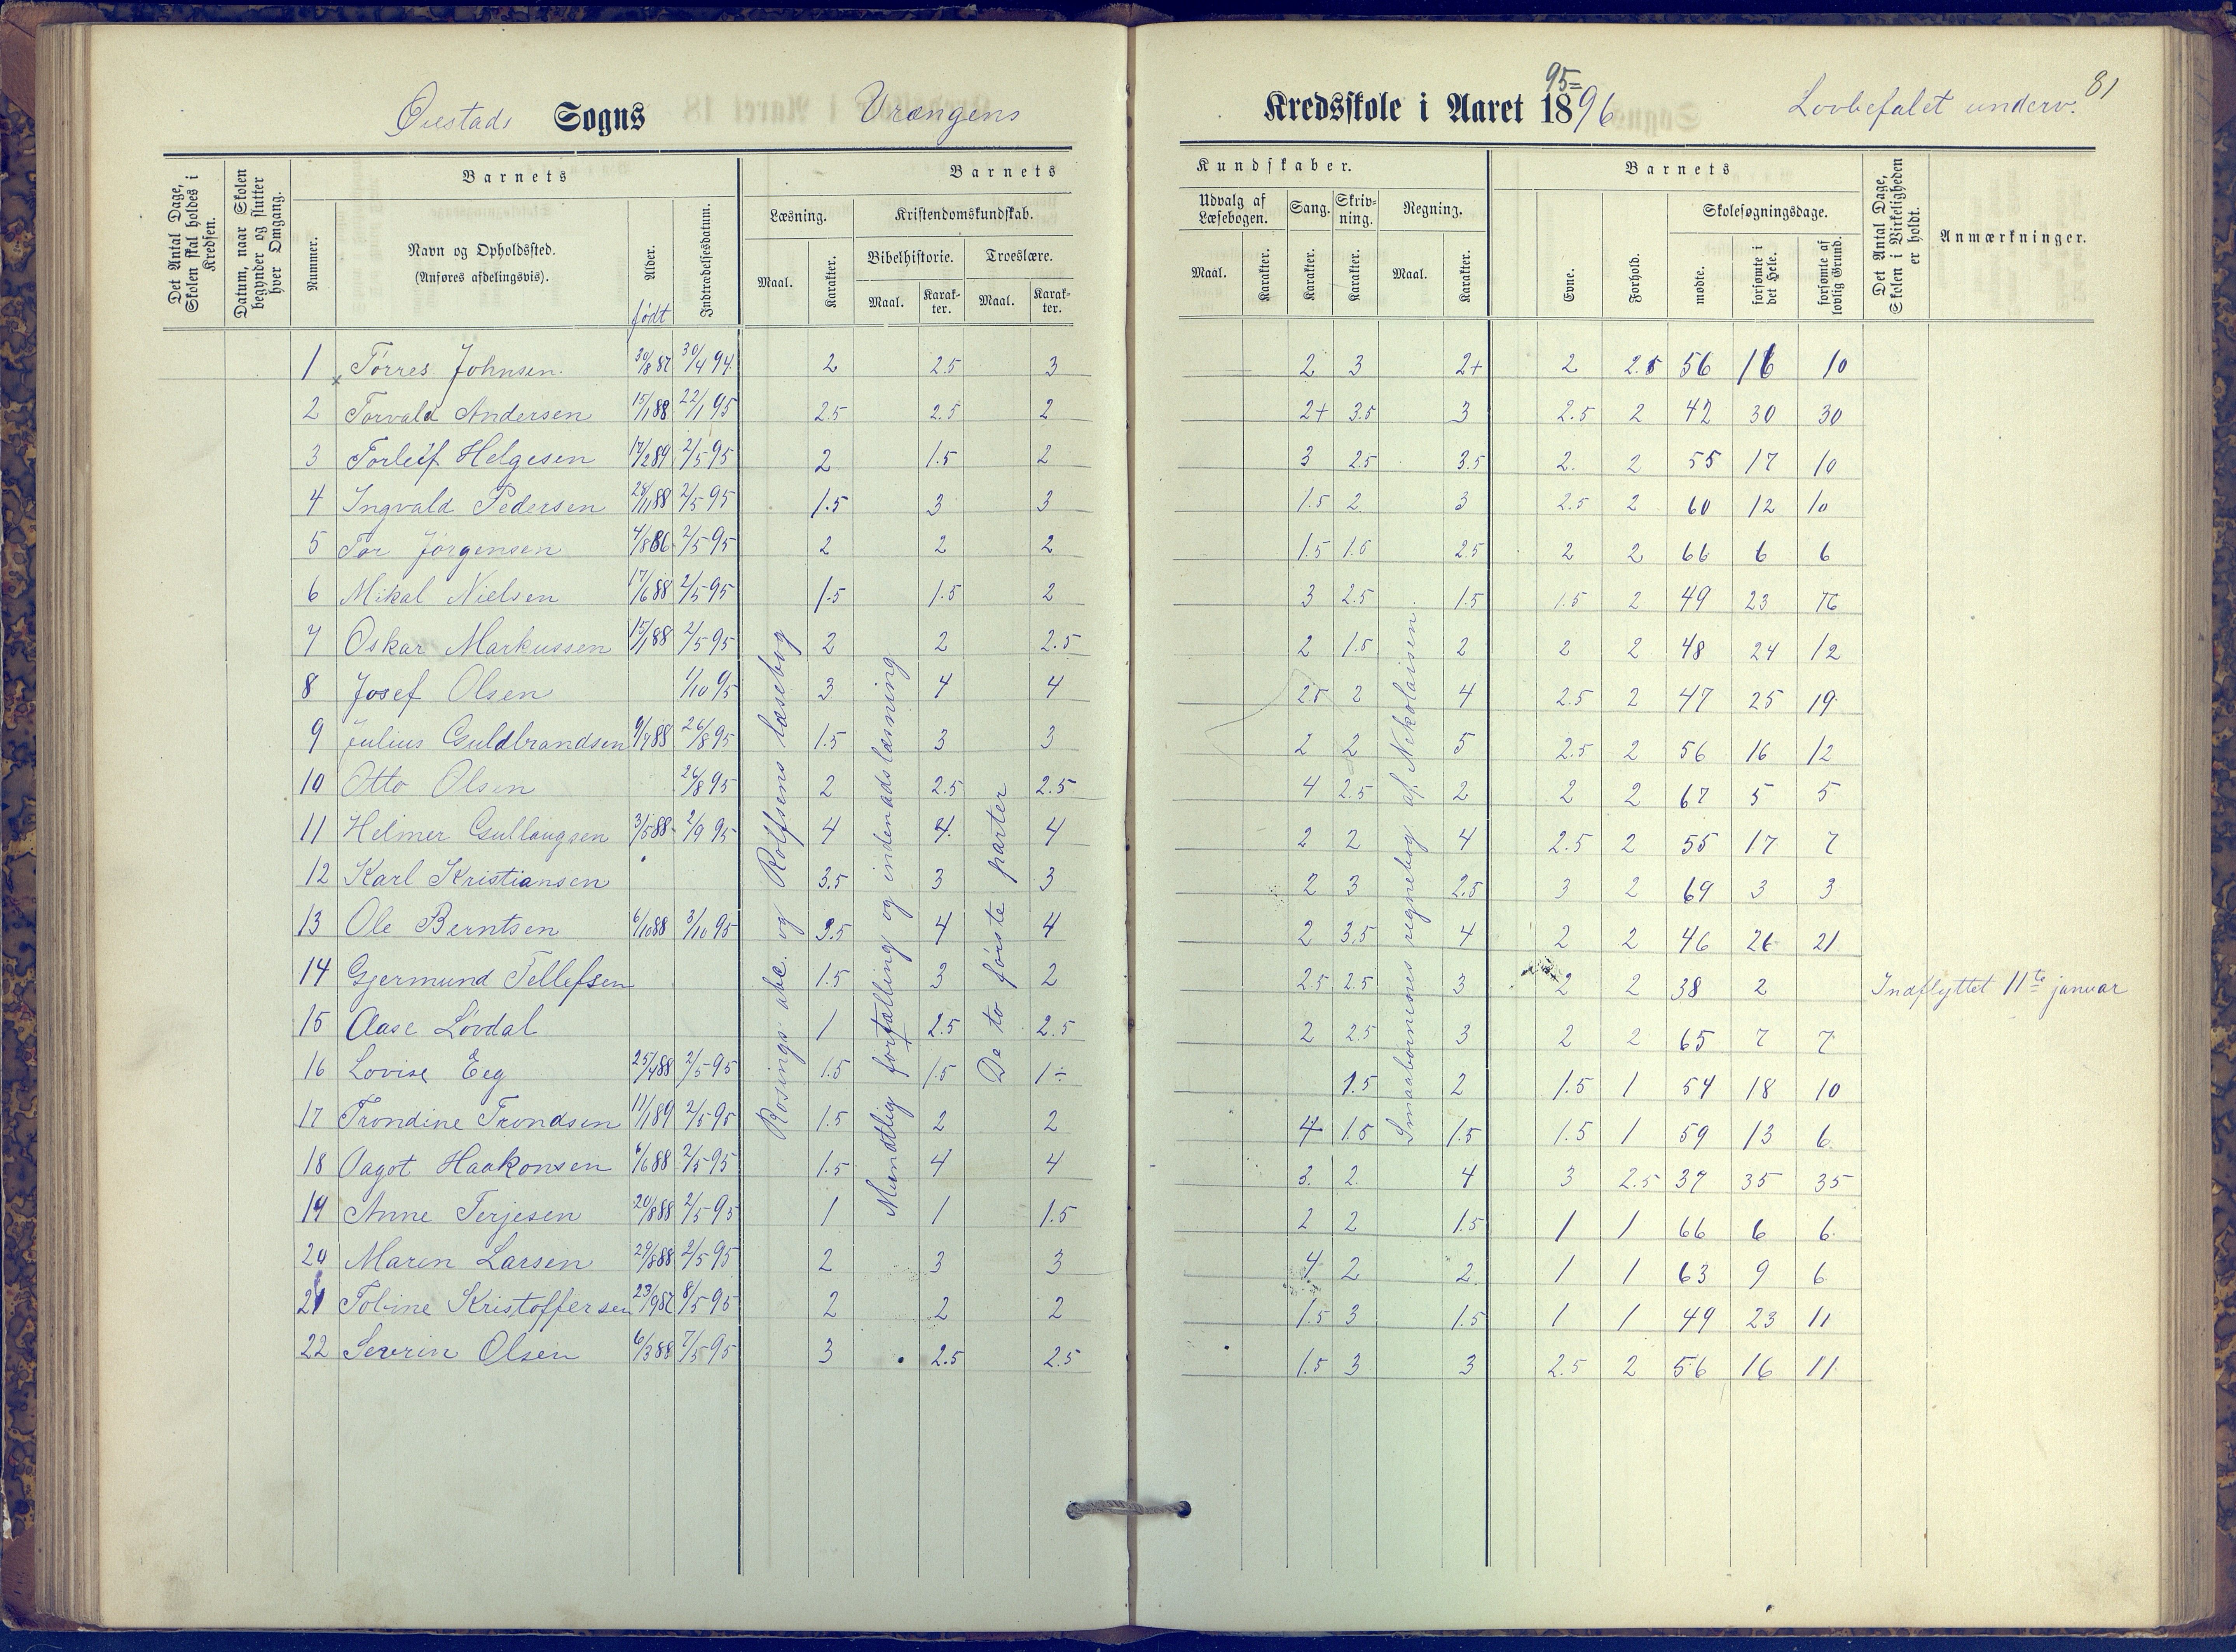 Øiestads Sogns Vrængens
Kredsskole i Aaret 1896
95=
Lovbefalet underv.
81
Det Antal Dage, Skolen skal holdes i Kredsen.
Datum, naar Skolen begynder og slutter hver Omgang.
Barnets
Nummer.
Navn og Opholdssted.
(Anføres afdelingsvis).
Alder.
født
Indtrædelsesdatum.
Barnets
Læsning.
Maal.
Karakter.
Kristendomskundskab.
Bibelhistorie.
Maal.
Karakter.
Troeslære.
Maal.
Karakter.
Kundskaber.
Udvalg af Læsebogen.
Maal.
Karakter.
Sang.
Karakter.
Skrivning.
Karakter.
Regning.
Maal.
Karakter.
Barnets
Evne.
Forhold.
Skolesøgningsdage.
mødte.
forsømte i det Hele.
forsømte af lovlig Grund.
Det Antal Dage, Skolen i Virkeligheden er holdt.
Anmærkninger.
1 Tørres Johnsen. 30/8 87 30/4 94 2 2.5 3 2 3 2+ 2 2.5 56 16 10
2 Torvald Andersen 15/1 88 22/1 95 2.5 2.5 2 2+ 3.5 3 2.5 2 42 30 30
3 Torleif Helgesen 17/2 89 2/5 95 2 1.5 2 3 2.5 3.5 2 2 55 17 10
4 Ingvald Pedersen 28/11 88 2/5 95 1.5 3 3 1.5 2 3 2.5 2 60 12 10
5 Tor Jørgensen 4/8 86 2/5 95 2 2 2 1.5 1.5 2.5 2 2 66 6 6
6 Mikal Nielsen 17/6 88 2/5 95 1.5 1.5 2 3 2.5 1.5 1.5 2 49 23 16
7 Oskar Markussen 15/1 88 2/5 95 2 2 2.5 2 1.5 2 2 2 48 24 12
8 Josef Olsen 1/10 95 3 4 4 2.5 2 4 2.5 2 47 25 19
9 Julius Guldbrandsen 9/7 88 26/8 95 1.5 3 3 2 2 5 2.5 2 56 16 12
10 Otto Olsen 26/8 95 2 2.5 2.5 4 2.5 2 2 2 67 5 5
11 Helmer Gullaugsen 3/5 88 2/9 95 4 4 4 2 2 4 2.5 2 55 17 7
12 Karl Kristiansen 3.5 3 3 2 3 2.5 3 2 69 3 3
13 Ole Berntsen 6/10 88 3/10 95 3.5 4 4 2 3.5 4 2 2 46 26 21
14 Gjermund Tellefsen 1.5 3 2 2.5 2.5 3 2 2 38 2 Indflyttet 11te januar
15 Aase Løvdal 1 2.5 2.5 2 2.5 3 2 2 65 7 7
16 Lovise Eeg 25/4 88 2/5 95 1.5 1.5 1÷ 1.5 2 1.5 1 54 18 10
17 Trondine Trondsen 11/1 89 2/5 95 1.5 2 2 4 1.5 1.5 1.5 1 59 13 6
18 Dagot Haakonsen 6/6 88 2/5 95 1.5 4 4 3. 2. 4 3 2.5 37 35 35
19 Anne Terjesen 20/8 88 2/5 95 1 1 1.5 2 2 1.5 1 1 66 6 6
20 Maren Larsen 29/8 88 2/5 95 2 3 3 4 2 2 1 1 63 9 6
21 Tobine Kristoffersen 23/9 87 8/5 95 2 2 2 1.5 3 1.5 1 1 49 23 11
22 Severin Olsen 6/3 88 7/5 95 3 2.5 2.5 1.5 3 3 2.5 2 56 16 11
Rosings abc. og Rolfsens læsebog
Mundtlig fortælling og indenadslæsning
De to første parter
Smaabørnenes regnebog af Nikolaisen.